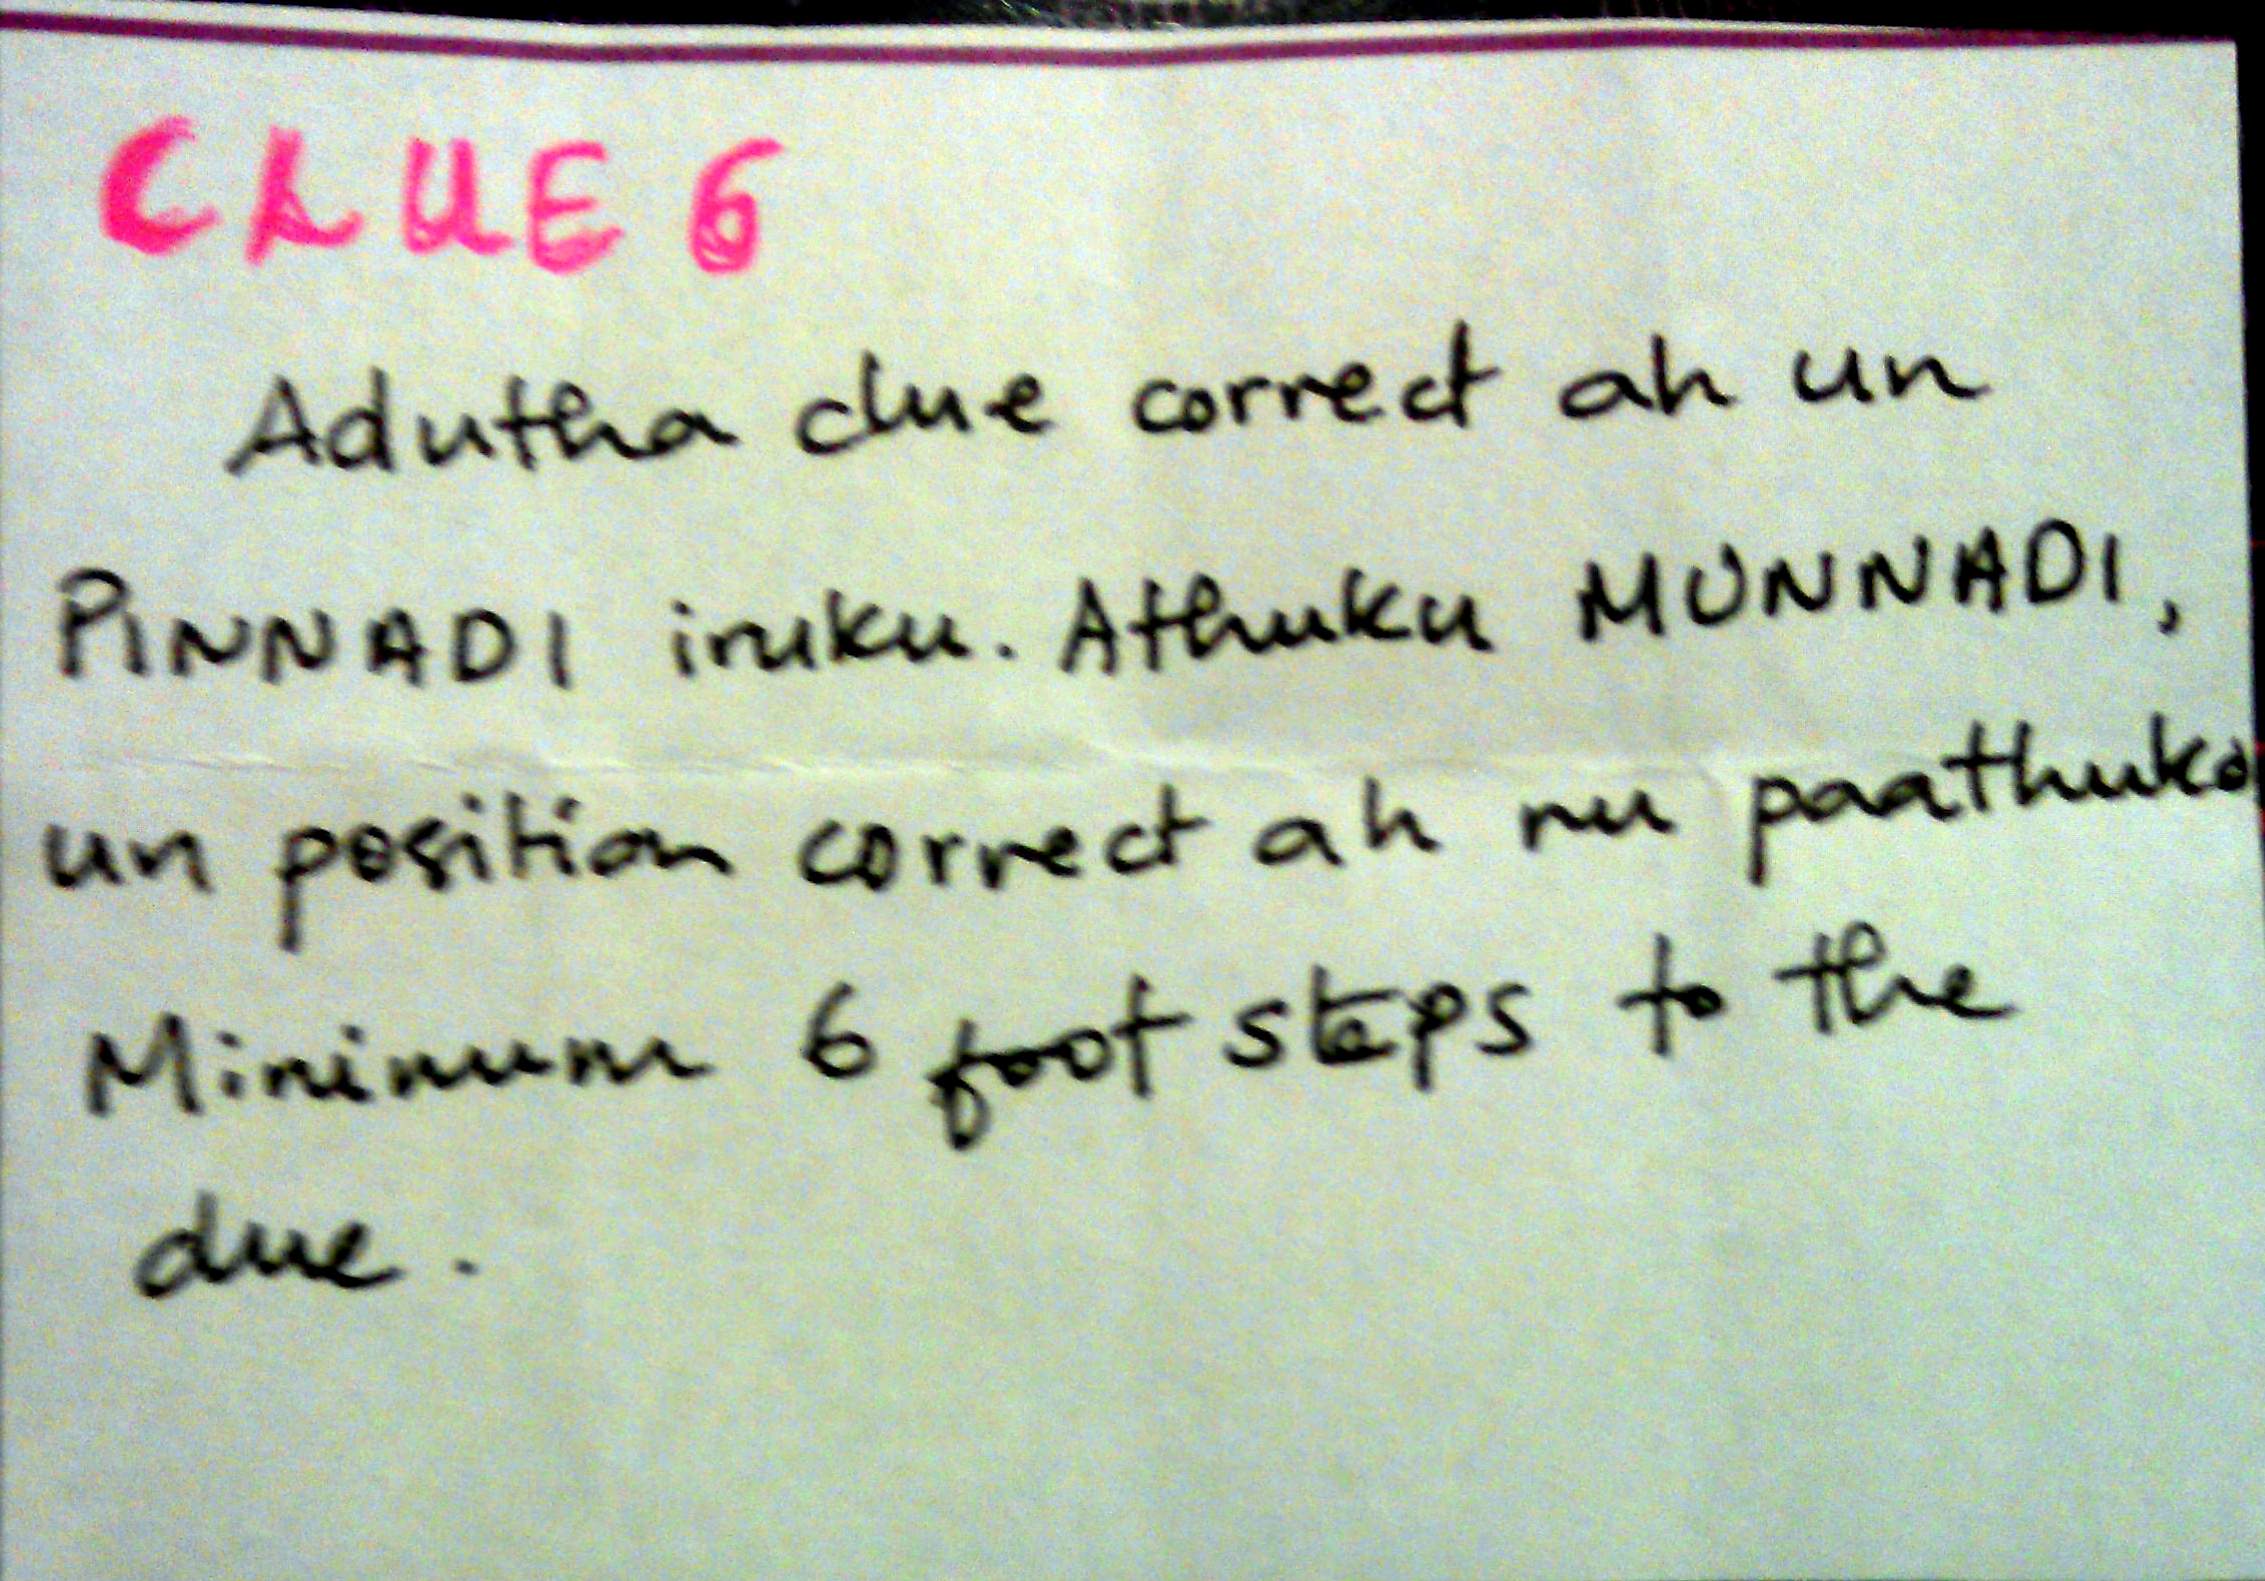 CLUE 6
Adutha clue correct ah un
PINNADI iruku. Athuku MUNNADI,
un position correct ah nu paathuko
Minimum 6 foot steps to the
clue.